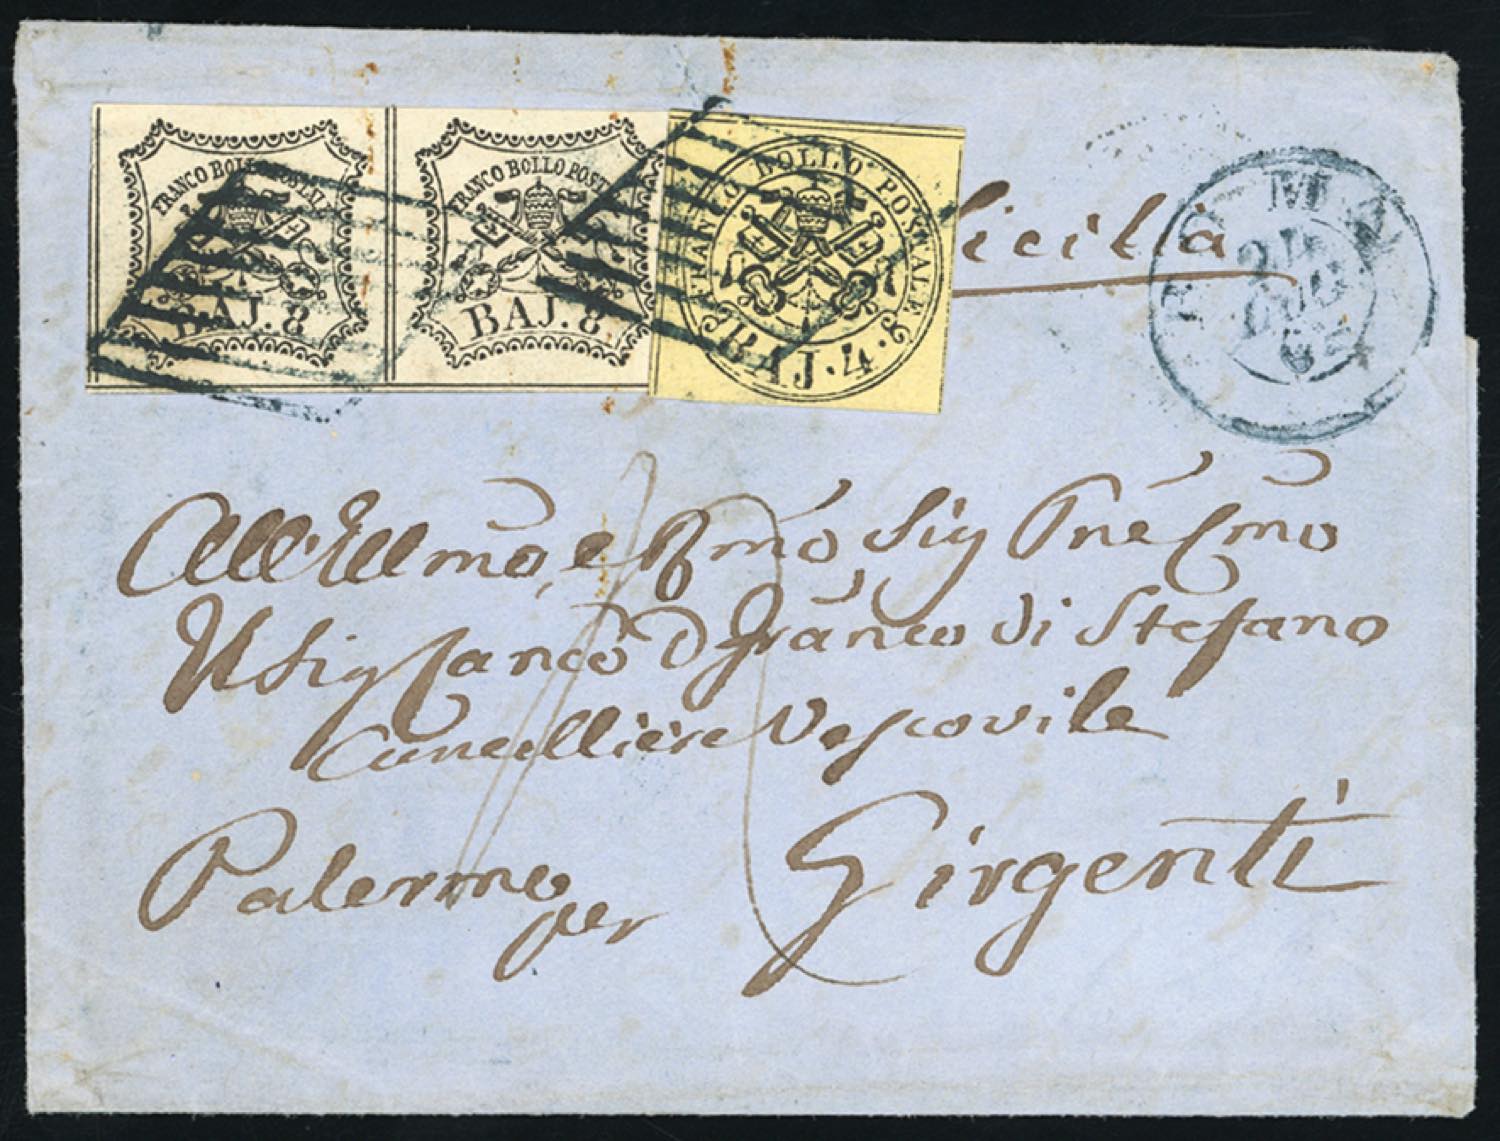 FRANCO BOLLO POSTALE
BAJ. 8
FRANCO BOLLO POSTALE
BAJ. 8
FRANCO BOLLO POSTALE
BAJ. 4
Sicilia
ROMA
All'Illmo, e Rmo Sig Prne Smo
Il Sig Canco D Franco Di Stefano
Cancelliere Vescovile
Palermo per Girgenti